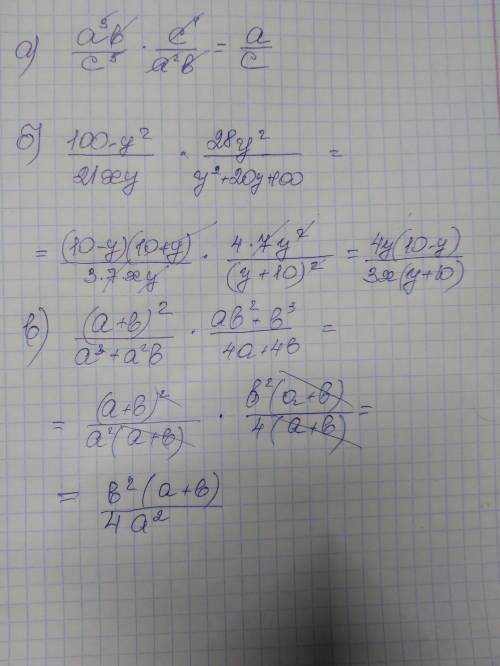 а) a³b/c⁵ · c⁴/a²b = a/c
б) 100-y²/21xy · 28y²/y²+20y+100 =
= (10-y)(10+y)/3·7xy · 4·7y²/(y+10)² = 4y(10-y)/3x(y+10)
в) (a+b)²/a³+a²b · ab²+b³/4a+4b =
= (a+b)²/a²(a+b) · b²(a+b)/4(a+b) =
= b²(a+b)/4a²